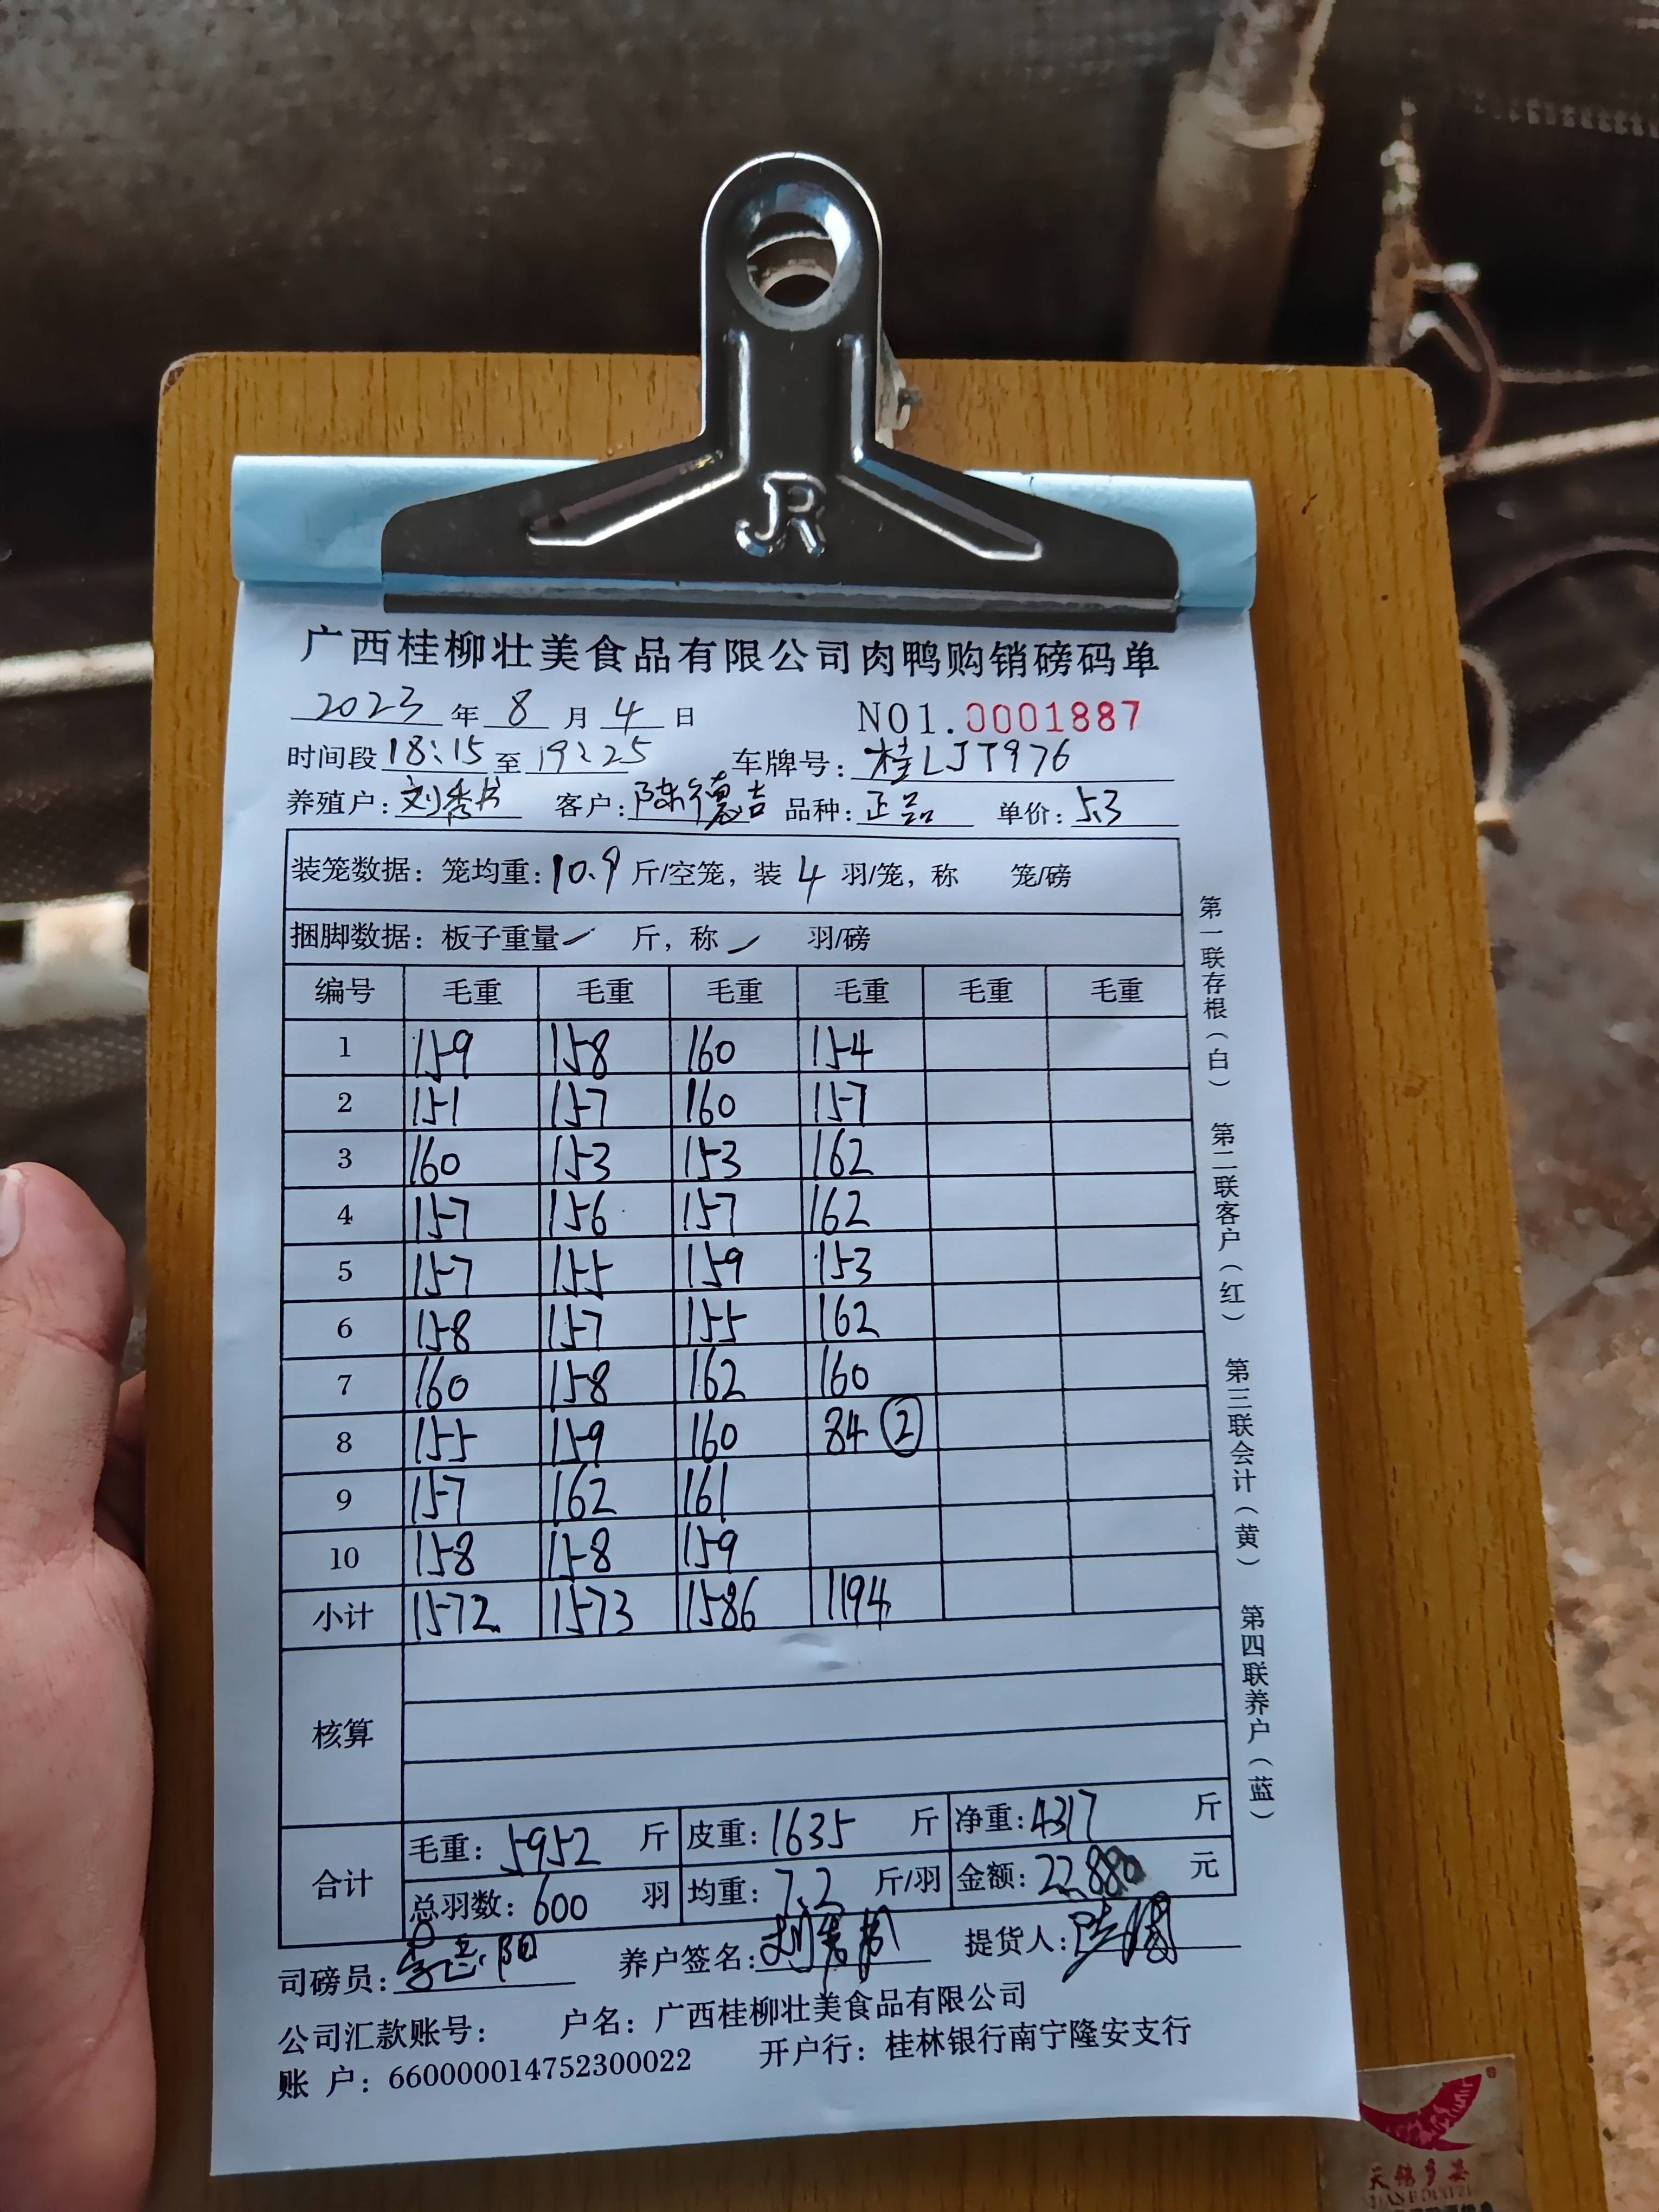 JR
广西桂柳壮美食品有限公司肉鸭购销磅码单
2023 年 8 月 4 日 NO1.0001887
时间段 18:15 至 19:25 车牌号: 桂LJT976
养殖户: 刘秀 客户: 陈德吉 品种: 正品 单价: 5.3
装笼数据: 笼均重: 10.9 斤/空笼, 装 4 羽/笼, 称 笼/磅
捆脚数据: 板子重量 / 斤, 称 / 羽/磅
编号 毛重 毛重 毛重 毛重 毛重 毛重
1 159 158 160 154
2 151 157 160 157
3 160 153 153 162
4 157 156 157 162
5 157 155 159 153
6 158 157 155 162
7 160 158 162 160
8 155 159 160 84 ②
9 157 162 161
10 158 158 159
小计 1572 1573 1586 1194
核算
合计
毛重: 5952 斤 皮重: 1635 斤 净重: 4317 斤
总羽数: 600 羽 均重: 7.2 斤/羽 金额: 22880 元
司磅员: 养户签名: 提货人:
公司汇款账号: 户名: 广西桂柳壮美食品有限公司
账 户: 660000014752300022 开户行: 桂林银行南宁隆安支行
第一联存根(白) 第二联客户(红) 第三联会计(黄) 第四联养户(蓝)